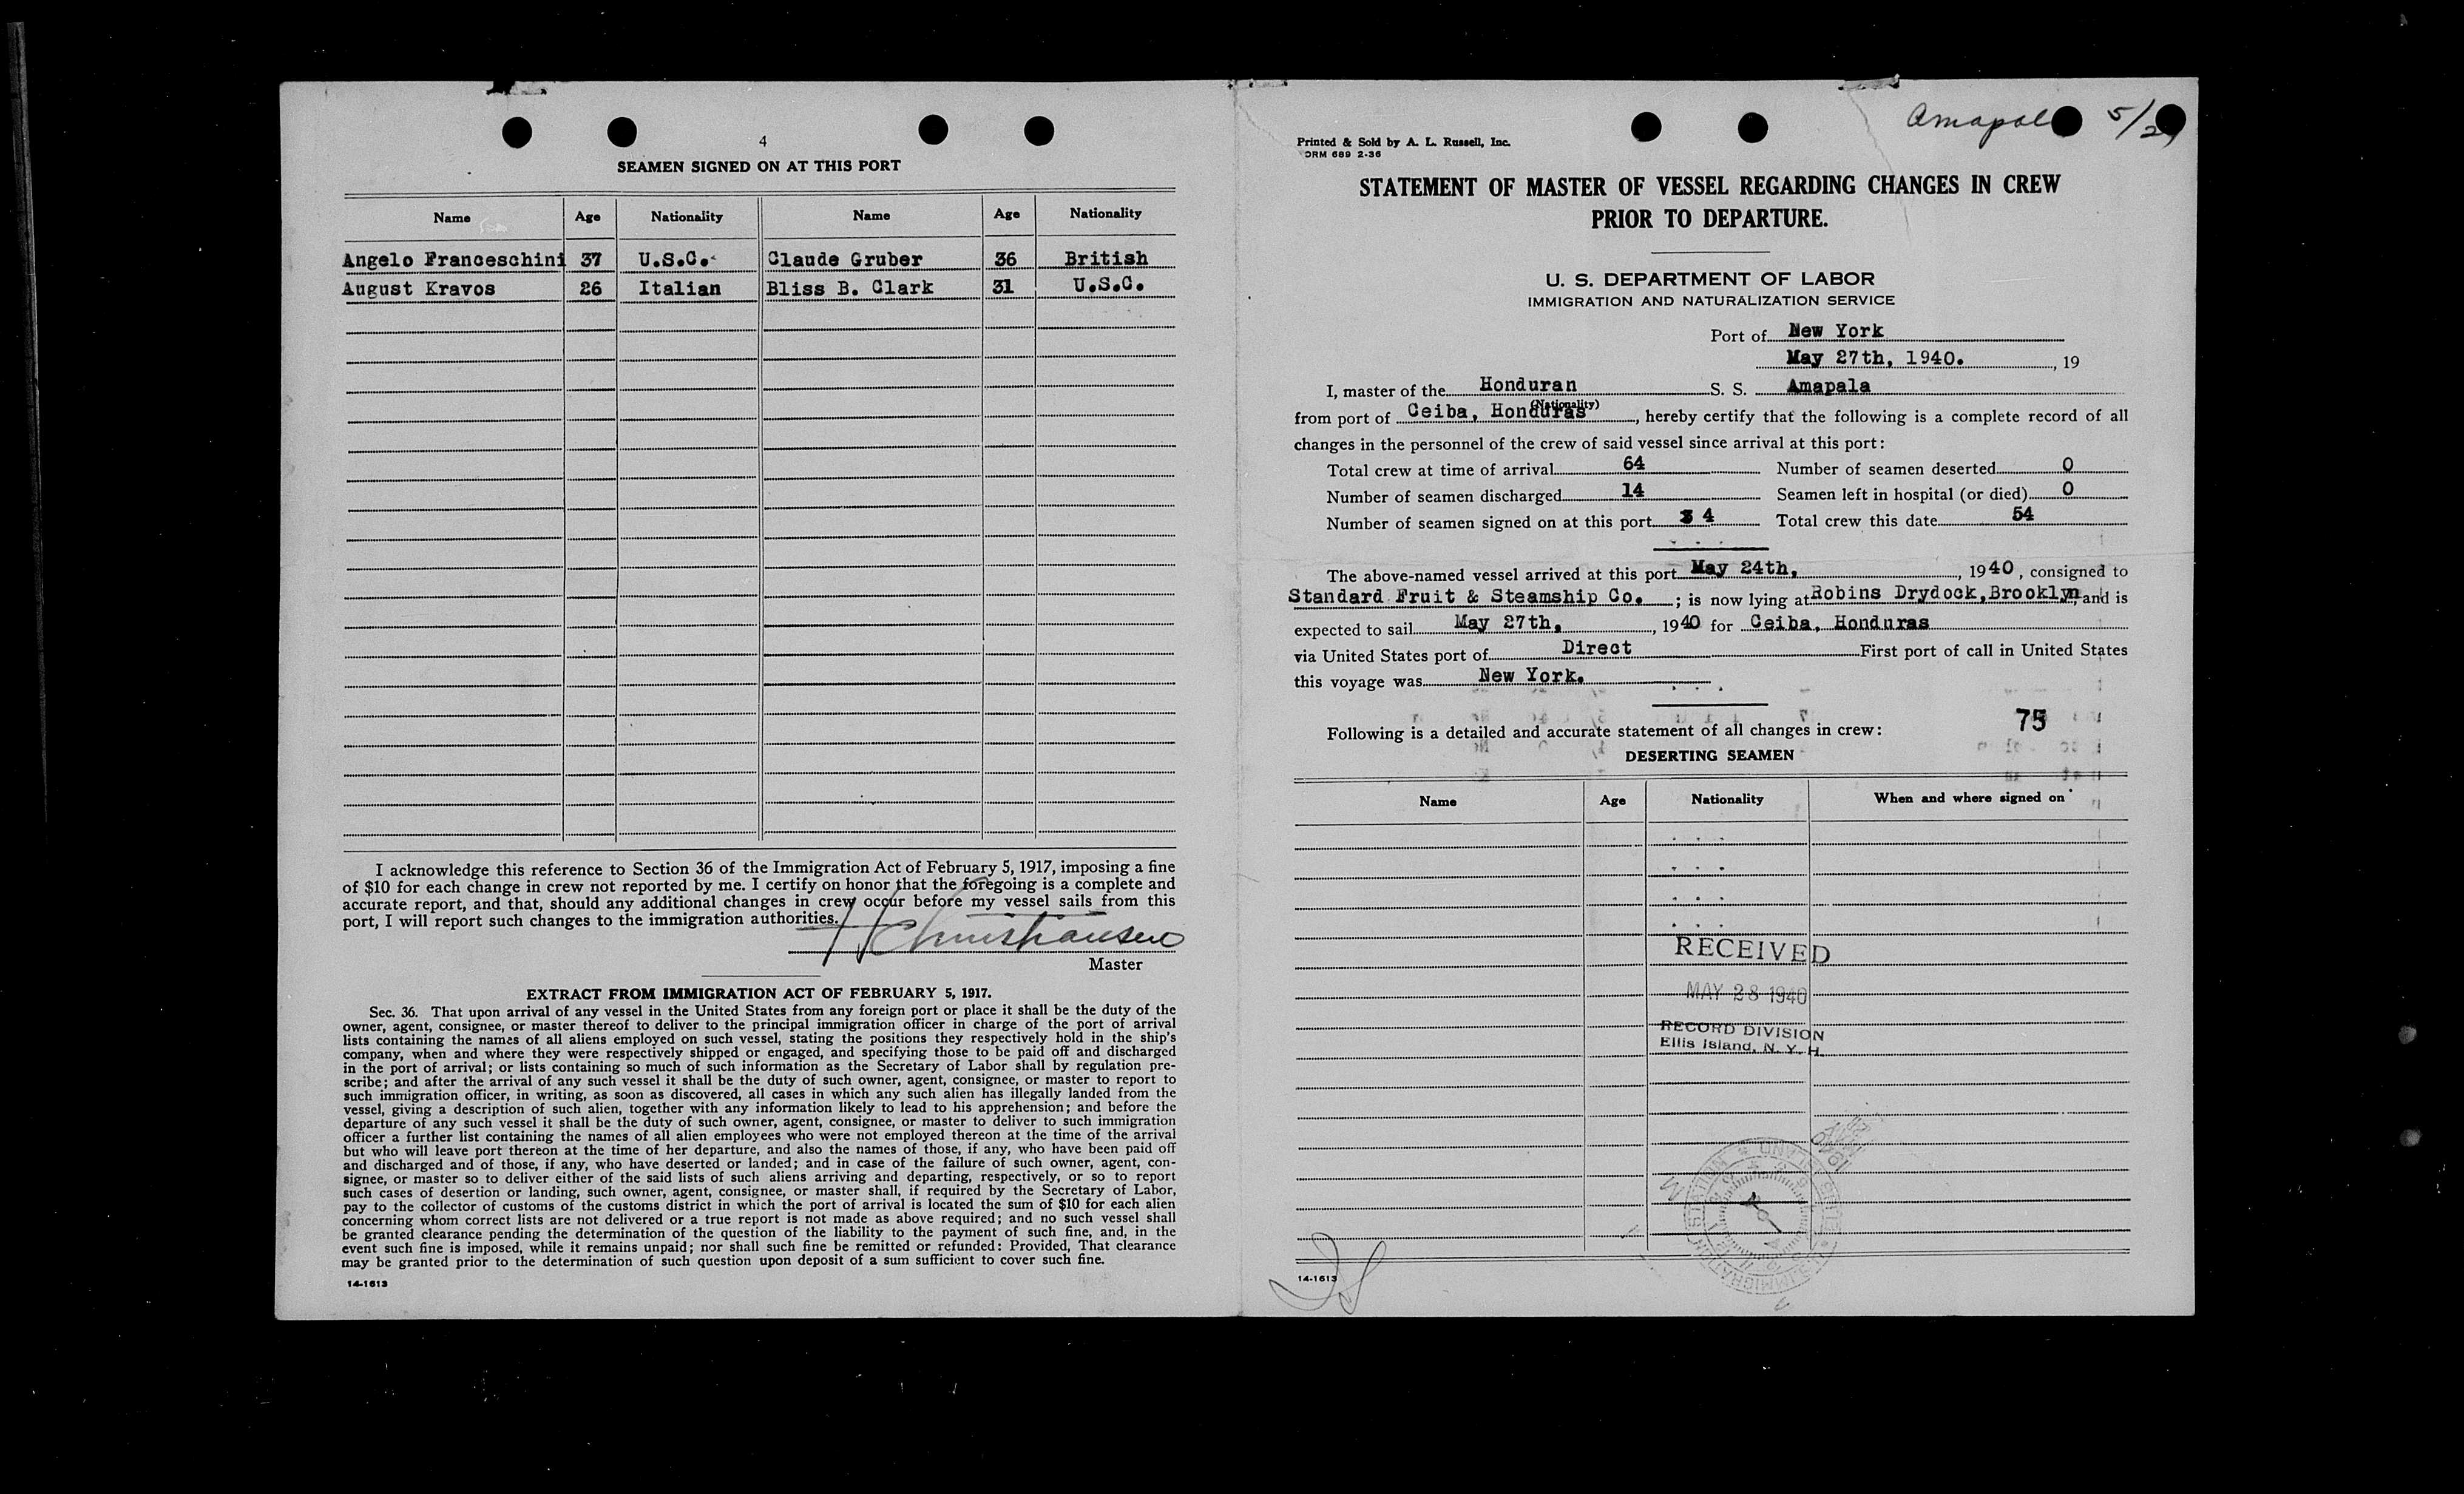 4
SEAMEN SIGNED ON AT THIS PORT
Name Age Nationality Name Age Nationality
Angelo Franceschini 37 U.S.C. Claude Gruber 36 British
August Kravos 26 Italian Bliss B. Clark 31 U.S.C.
I acknowledge this reference to Section 36 of the Immigration Act of February 5, 1917, imposing a fine
of $10 for each change in crew not reported by me. I certify on honor that the foregoing is a complete and
accurate report, and that, should any additional changes in crew occur before my vessel sails from this
port, I will report such changes to the immigration authorities.
H Christiansen
Master
EXTRACT FROM IMMIGRATION ACT OF FEBRUARY 5, 1917.
Sec. 36. That upon arrival of any vessel in the United States from any foreign port or place it shall be the duty of the
owner, agent, consignee, or master thereof to deliver to the principal immigration officer in charge of the port of arrival
lists containing the names of all aliens employed on such vessel, stating the positions they respectively hold in the ship's
company, when and where they were respectively shipped or engaged, and specifying those to be paid off and discharged
in the port of arrival; or lists containing so much of such information as the Secretary of Labor shall by regulation pre-
scribe; and after the arrival of any such vessel it shall be the duty of such owner, agent, consignee, or master to report to
such immigration officer, in writing, as soon as discovered, all cases in which any such alien has illegally landed from the
vessel, giving a description of such alien, together with any information likely to lead to his apprehension; and before the
departure of any such vessel it shall be the duty of such owner, agent, consignee, or master to deliver to such immigration
officer a further list containing the names of all alien employees who were not employed thereon at the time of the arrival
but who will leave port thereon at the time of her departure, and also the names of those, if any, who have been paid off
and discharged and of those, if any, who have deserted or landed; and in case of the failure of such owner, agent, con-
signee, or master so to deliver either of the said lists of such aliens arriving and departing, respectively, or so to report
such cases of desertion or landing, such owner, agent, consignee, or master shall, if required by the Secretary of Labor,
pay to the collector of customs of the customs district in which the port of arrival is located the sum of $10 for each alien
concerning whom correct lists are not delivered or a true report is not made as above required; and no such vessel shall
be granted clearance pending the determination of the question of the liability to the payment of such fine, and, in the
event such fine is imposed, while it remains unpaid; nor shall such fine be remitted or refunded: Provided, That clearance
may be granted prior to the determination of such question upon deposit of a sum sufficient to cover such fine.
14-1613
Amapal 5/2
Printed & Sold by A. L. Russell, Inc.
ORM 689 2-36
STATEMENT OF MASTER OF VESSEL REGARDING CHANGES IN CREW
PRIOR TO DEPARTURE.
U. S. DEPARTMENT OF LABOR
IMMIGRATION AND NATURALIZATION SERVICE
Port of New York
May 27th, 1940. , 19
I, master of the Honduran S. S. Amapala
(Nationality)
from port of Ceiba, Honduras , hereby certify that the following is a complete record of all
changes in the personnel of the crew of said vessel since arrival at this port:
Total crew at time of arrival 64 Number of seamen deserted 0
Number of seamen discharged 14 Seamen left in hospital (or died) 0
Number of seamen signed on at this port 4 Total crew this date 54
The above-named vessel arrived at this port May 24th, , 1940, consigned to
Standard Fruit & Steamship Co. ; is now lying at Robins Drydock, Brooklyn, and is
expected to sail May 27th, , 1940 for Ceiba, Honduras
via United States port of Direct First port of call in United States
this voyage was New York.
75
Following is a detailed and accurate statement of all changes in crew:
DESERTING SEAMEN
Name Age Nationality When and where signed on
RECEIVED
MAY 28 1940
RECORD DIVISION
Ellis Island, N. Y. H.
14-1613